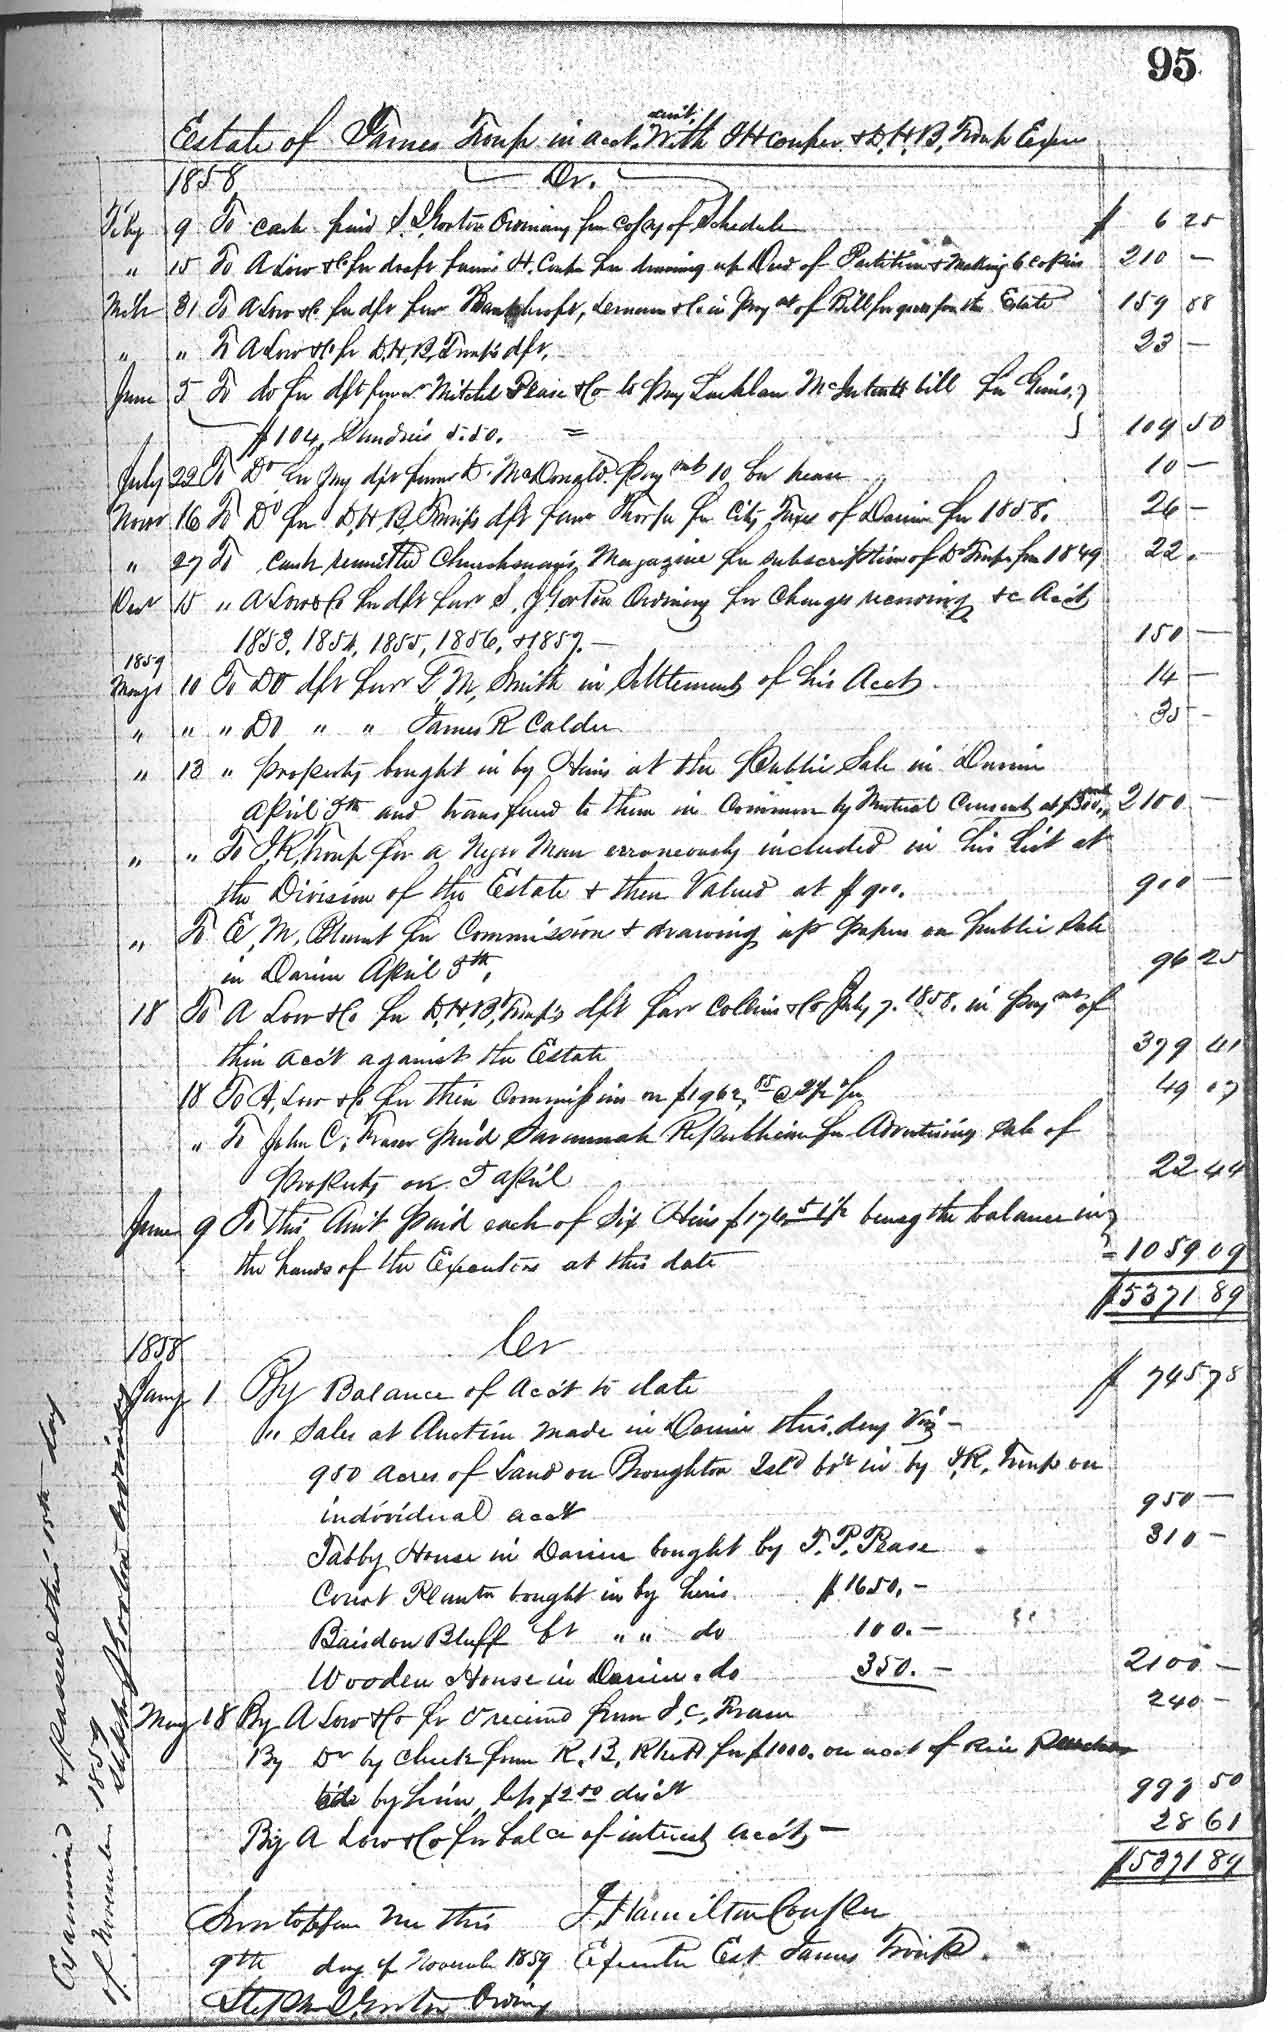 95
Estate of James Troup in acct. curt. With JHCouper & D, H, B, Troup Exors
1858 Dr.
Feby 9 To cash paid S. J. Gorton Ordinary for copy of Schedule $ 6 25
" 15 To A Low & Co for draft James H. Couper for drawing up Deed of Partition & Making 6 copies 210 —
Mch 31 To A Low & Co for dft favr Bancroft, & Co in Paymt of Bill for goods for the Estate 159 88
" " To A Low & Co for D. H, B, Troup's dft, 23 —
June 5 To do for dft favr Mitchel Pease & Co to pay Lachlan McIntosh bill for Gins,
$104, Sundries 5.50. = 109 50
July 22 To Do for my dft favr D. McDonald paymt 10 for hearse 10 —
Novr 16 To Do for D, H B, Troup's dft favr Thorpe for City Taxes of Darien for 1858. 26 —
" 27 To cash remitted Churchman's Magazine for subscription of Dr Troup from 1849 22. —
Decr 15 " A Low & Co for dft favr S. J Gorton Ordinary for Charges receiving &c Acct
1853, 1854, 1855, 1856, & 1857. — 150 —
1859
May 10 To DO dft favr T M, Smith in Settlement of his Acct. 14 —
" " " DO " " James R Calder 35 —
" 13 " Property bought in by Heirs at the Public Sale in Darien
April 5th and transferred to them in Common by Mutual Consent at $300, 2100 —
" " To J, R, Troup for a Negro Man erroneously included in his list at
the Division of the Estate & then Valued at $900. 900 —
" To E, M, Blount for Commission & drawing up papers on public Sale
in Darien April 5th, 96 25
18 To A Low & Co for D, H, B, Troup's dft favr Collins & Co July 7. 1858. in paymt of
their acc't against the Estate 379 41
18 To A, Low & Co for their Commissions on $1962,85 @ 2½ pr 49 07
" To John C, Fraser paid Savannah Republican for Advertising Sale of
property on 5 April 22 44
June 9 To this Am't paid each of Six Heirs $176.51½ being the balance in
the hands of the Executors at this date 1059 09
$5371 89
1858 Cr
Jany 1 By Balance of Acc't to date $ 745 78
" Sales at Auction made in Darien this, day Viz —
950 acres of Land on Broughton Isld bo't in by J, R, Troup on
individual acc't 950 —
Tabby House in Darien bought by T. P. Pease 310 —
Court Planta bought in by heirs $1650. —
Baisdon Bluff bt " " do 100. —
Wooden House in Darien. do 350. — 2100 —
May 18 By A Low & Co for received from J, C, Fraser 240 —
By Do by check from R, B, Rhett for $1000. on acct of
by him less $2 50 disct 997 50
By A Low & Co for balce of interest acc't — 28 61
$5371 89
Sworn to before me this J, Hamilton Couper
9th day of November 1859 Executor Est James Troup.
Stephen J. Gorton Ordny
Examined & passed this 15th day
of November 1859
Stephen J Gorton Ordinary